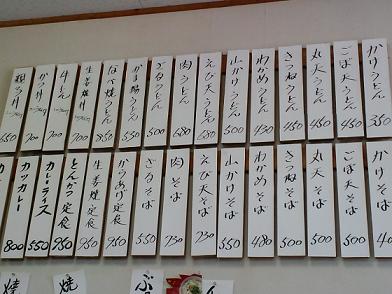 かけうどん 350
ごぼ天うどん 450
丸天うどん 450
きつねうどん 450
わかめうどん 430
山かけうどん 500
えび天うどん 680
肉うどん 680
ざるうどん 500
かま揚うどん 550
なべ焼うどん 850
生姜焼丼 900
牛丼 700
カツ丼 700
親子丼 650
かけそば
ごぼ天そば 500
丸天そば 500
きつねそば 500
わかめそば 480
山かけそば 550
えび天そば 730
肉そば 730
ざるそば 550
からあげ定食 950
生姜焼定食 950
とんかつ定食 950
カレーライス 550
カツカレー 800
焼
ぶ